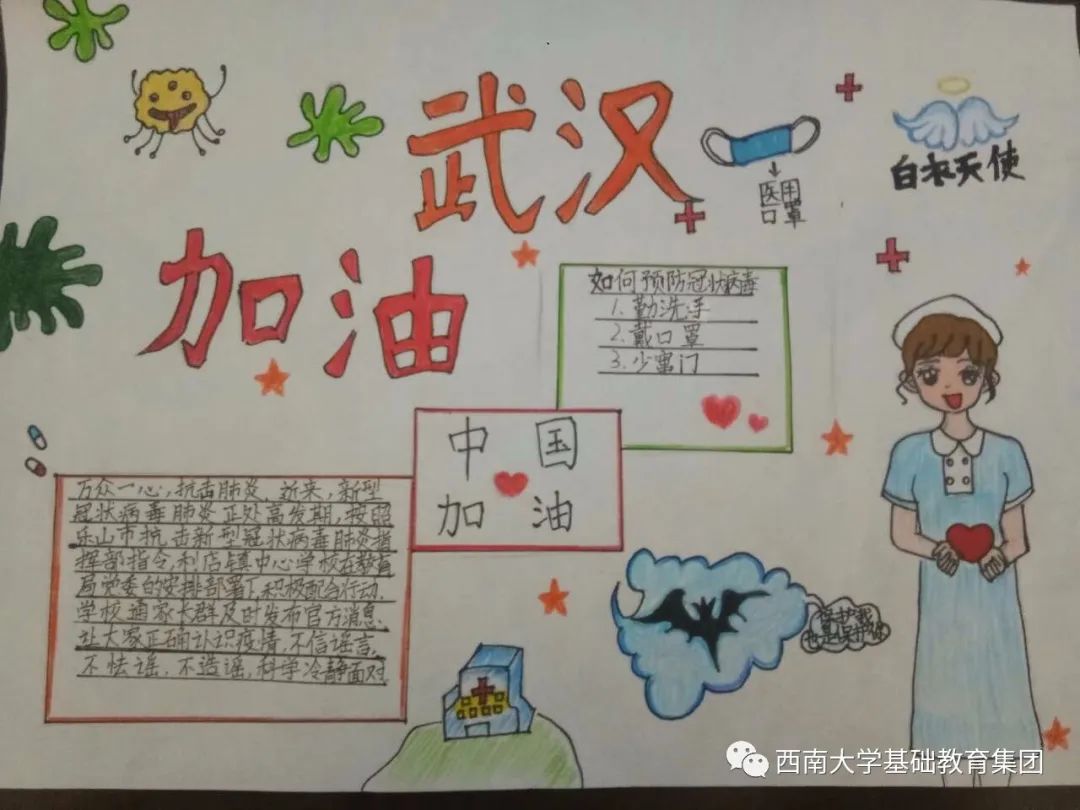 武汉
加油
医用
口罩
白衣天使
如何预防冠状病毒
1.勤洗手
2.戴口罩
3.少窜门
中国
加油
万众一心,抗击肺炎.近来,新型
冠状病毒肺炎正处高发期,按照
乐山市抗击新型冠状病毒肺炎指
挥部指令,利店镇中心学校在教育
局党委的安排部署下,积极配合行动.
学校通家长群及时发布官方消息.
让大家正确认识疫情,不信谣言,
不怯谣.不造谣,科学冷静面对
西南大学基础教育集团